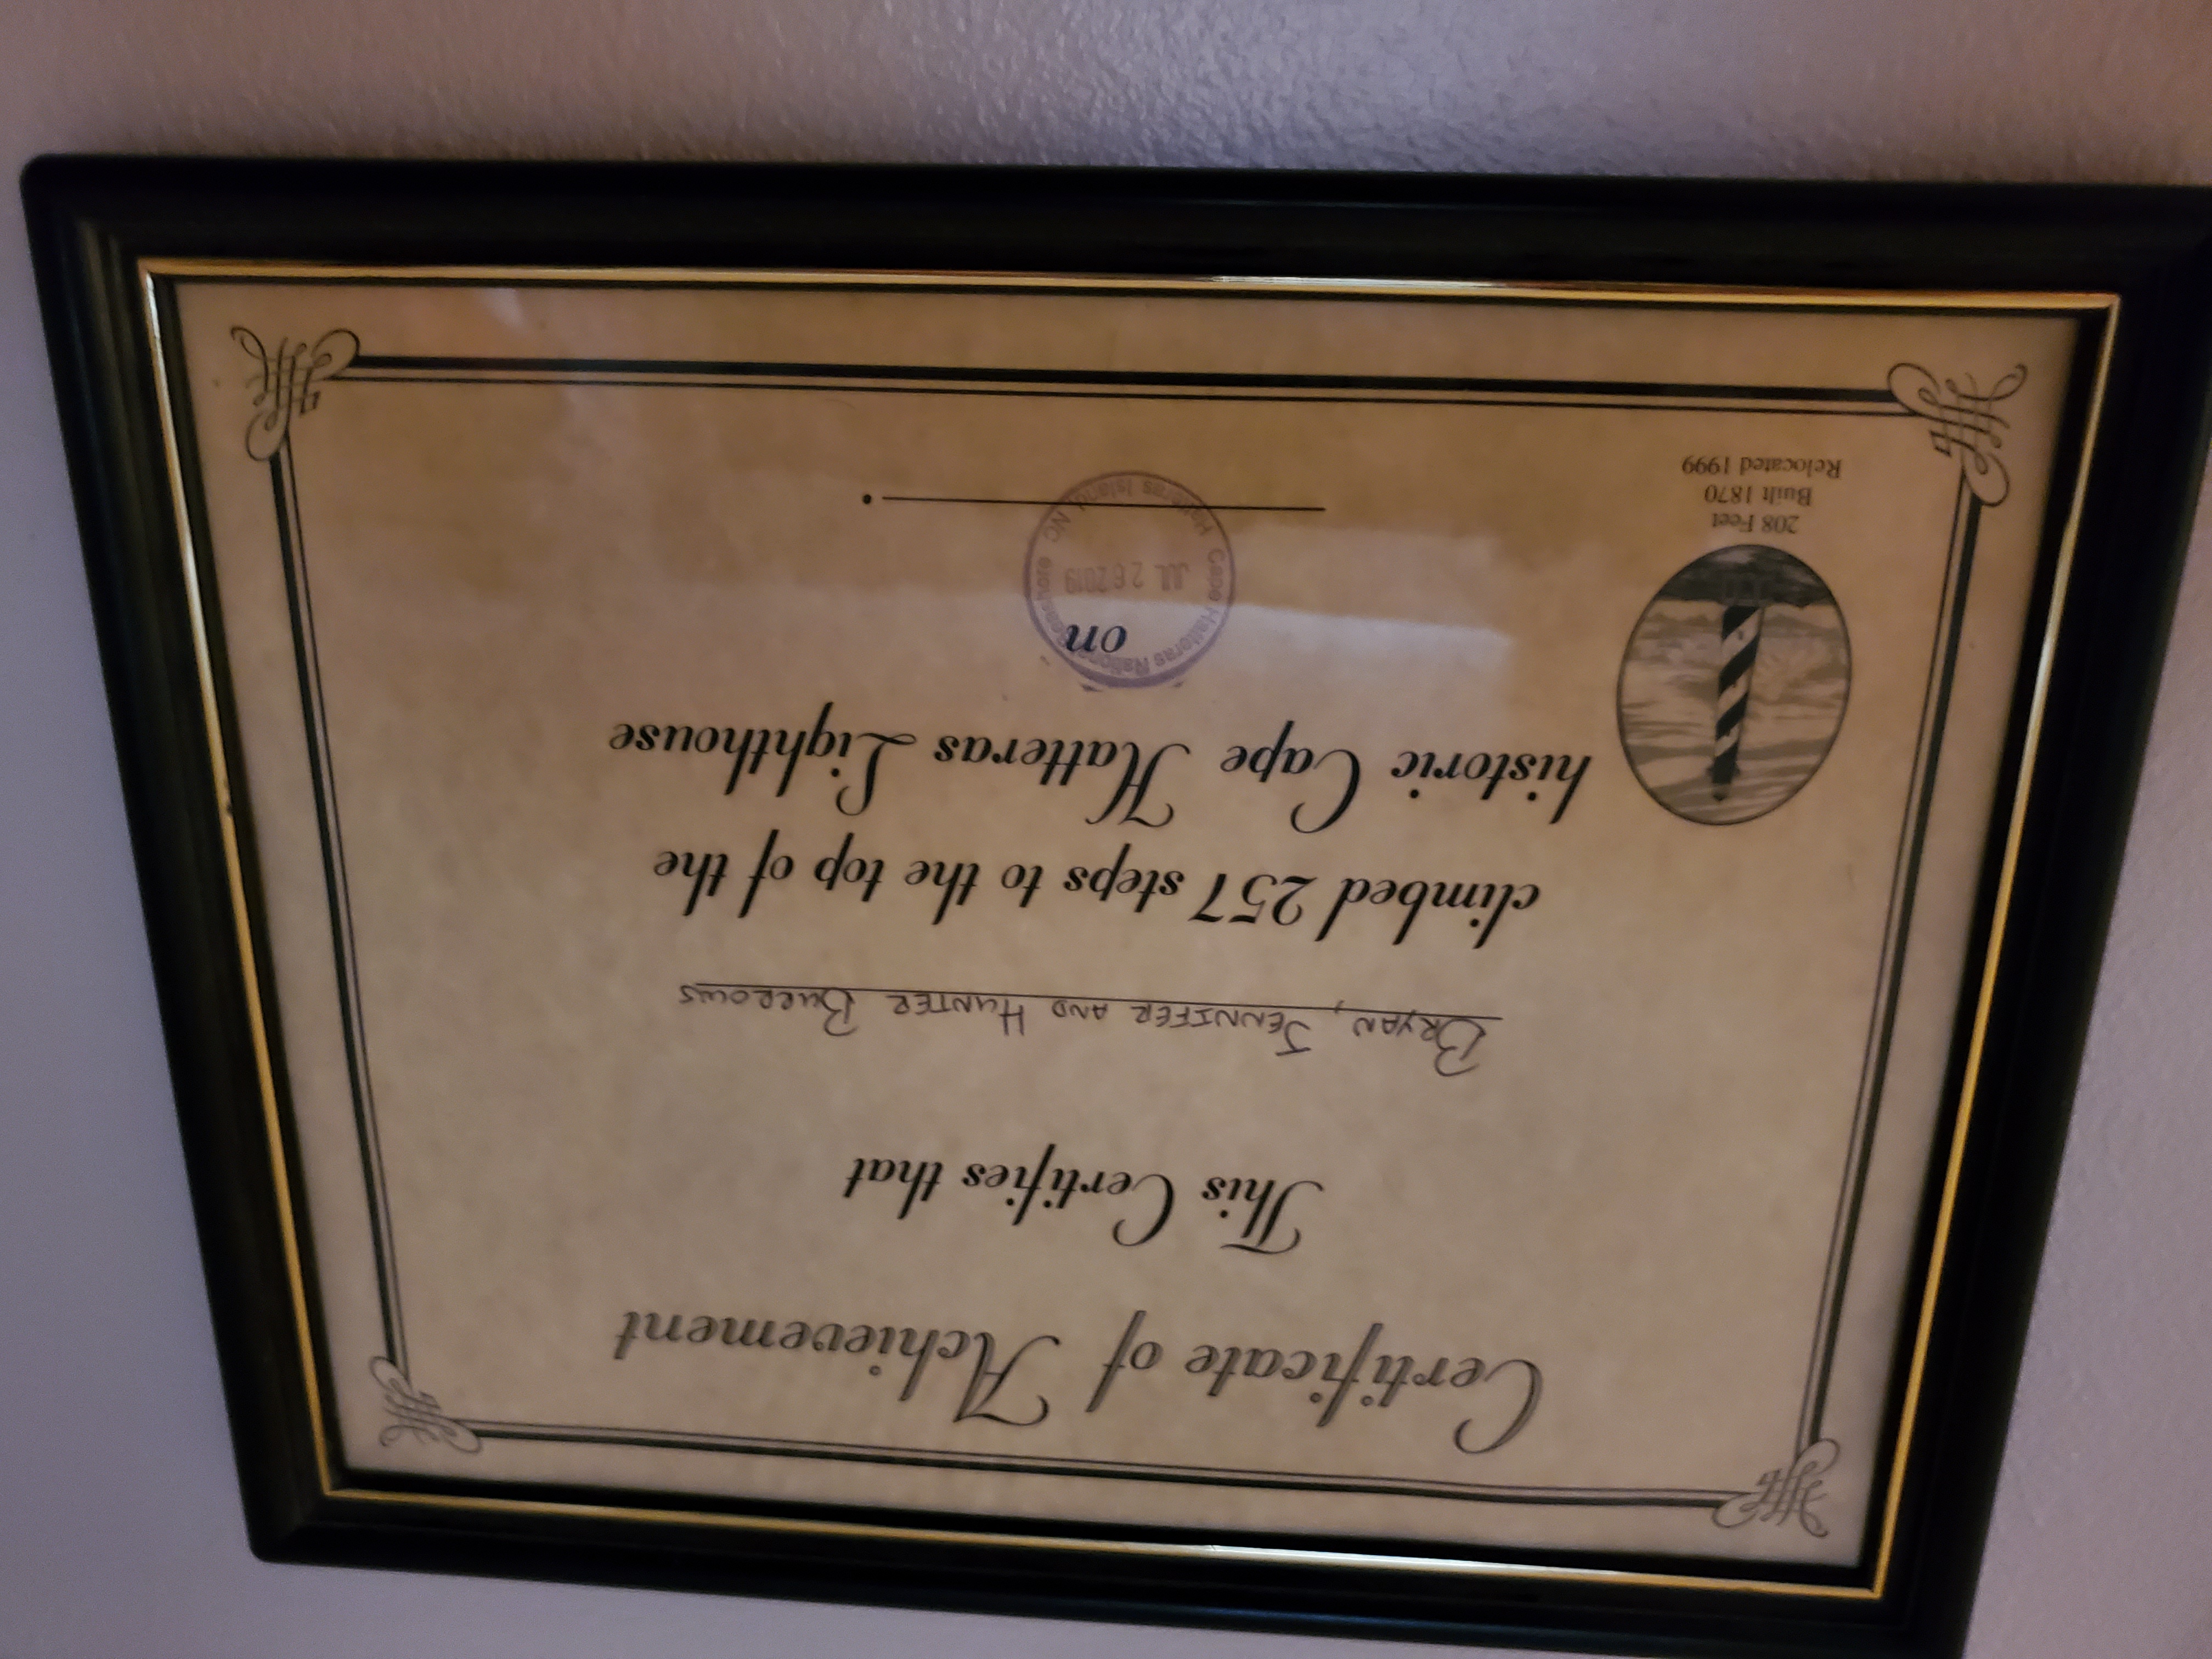 Certificate of Achievement
This Certifies that
BRYAN, JENNIFER AND HUNTER BURROWS
climbed 257 steps to the top of the
historic Cape Hatteras Lighthouse
on
Cape Hatteras National Seashore
JUL 26 2019
Hatteras Island, NC
.
208 Feet
Built 1870
Relocated 1999